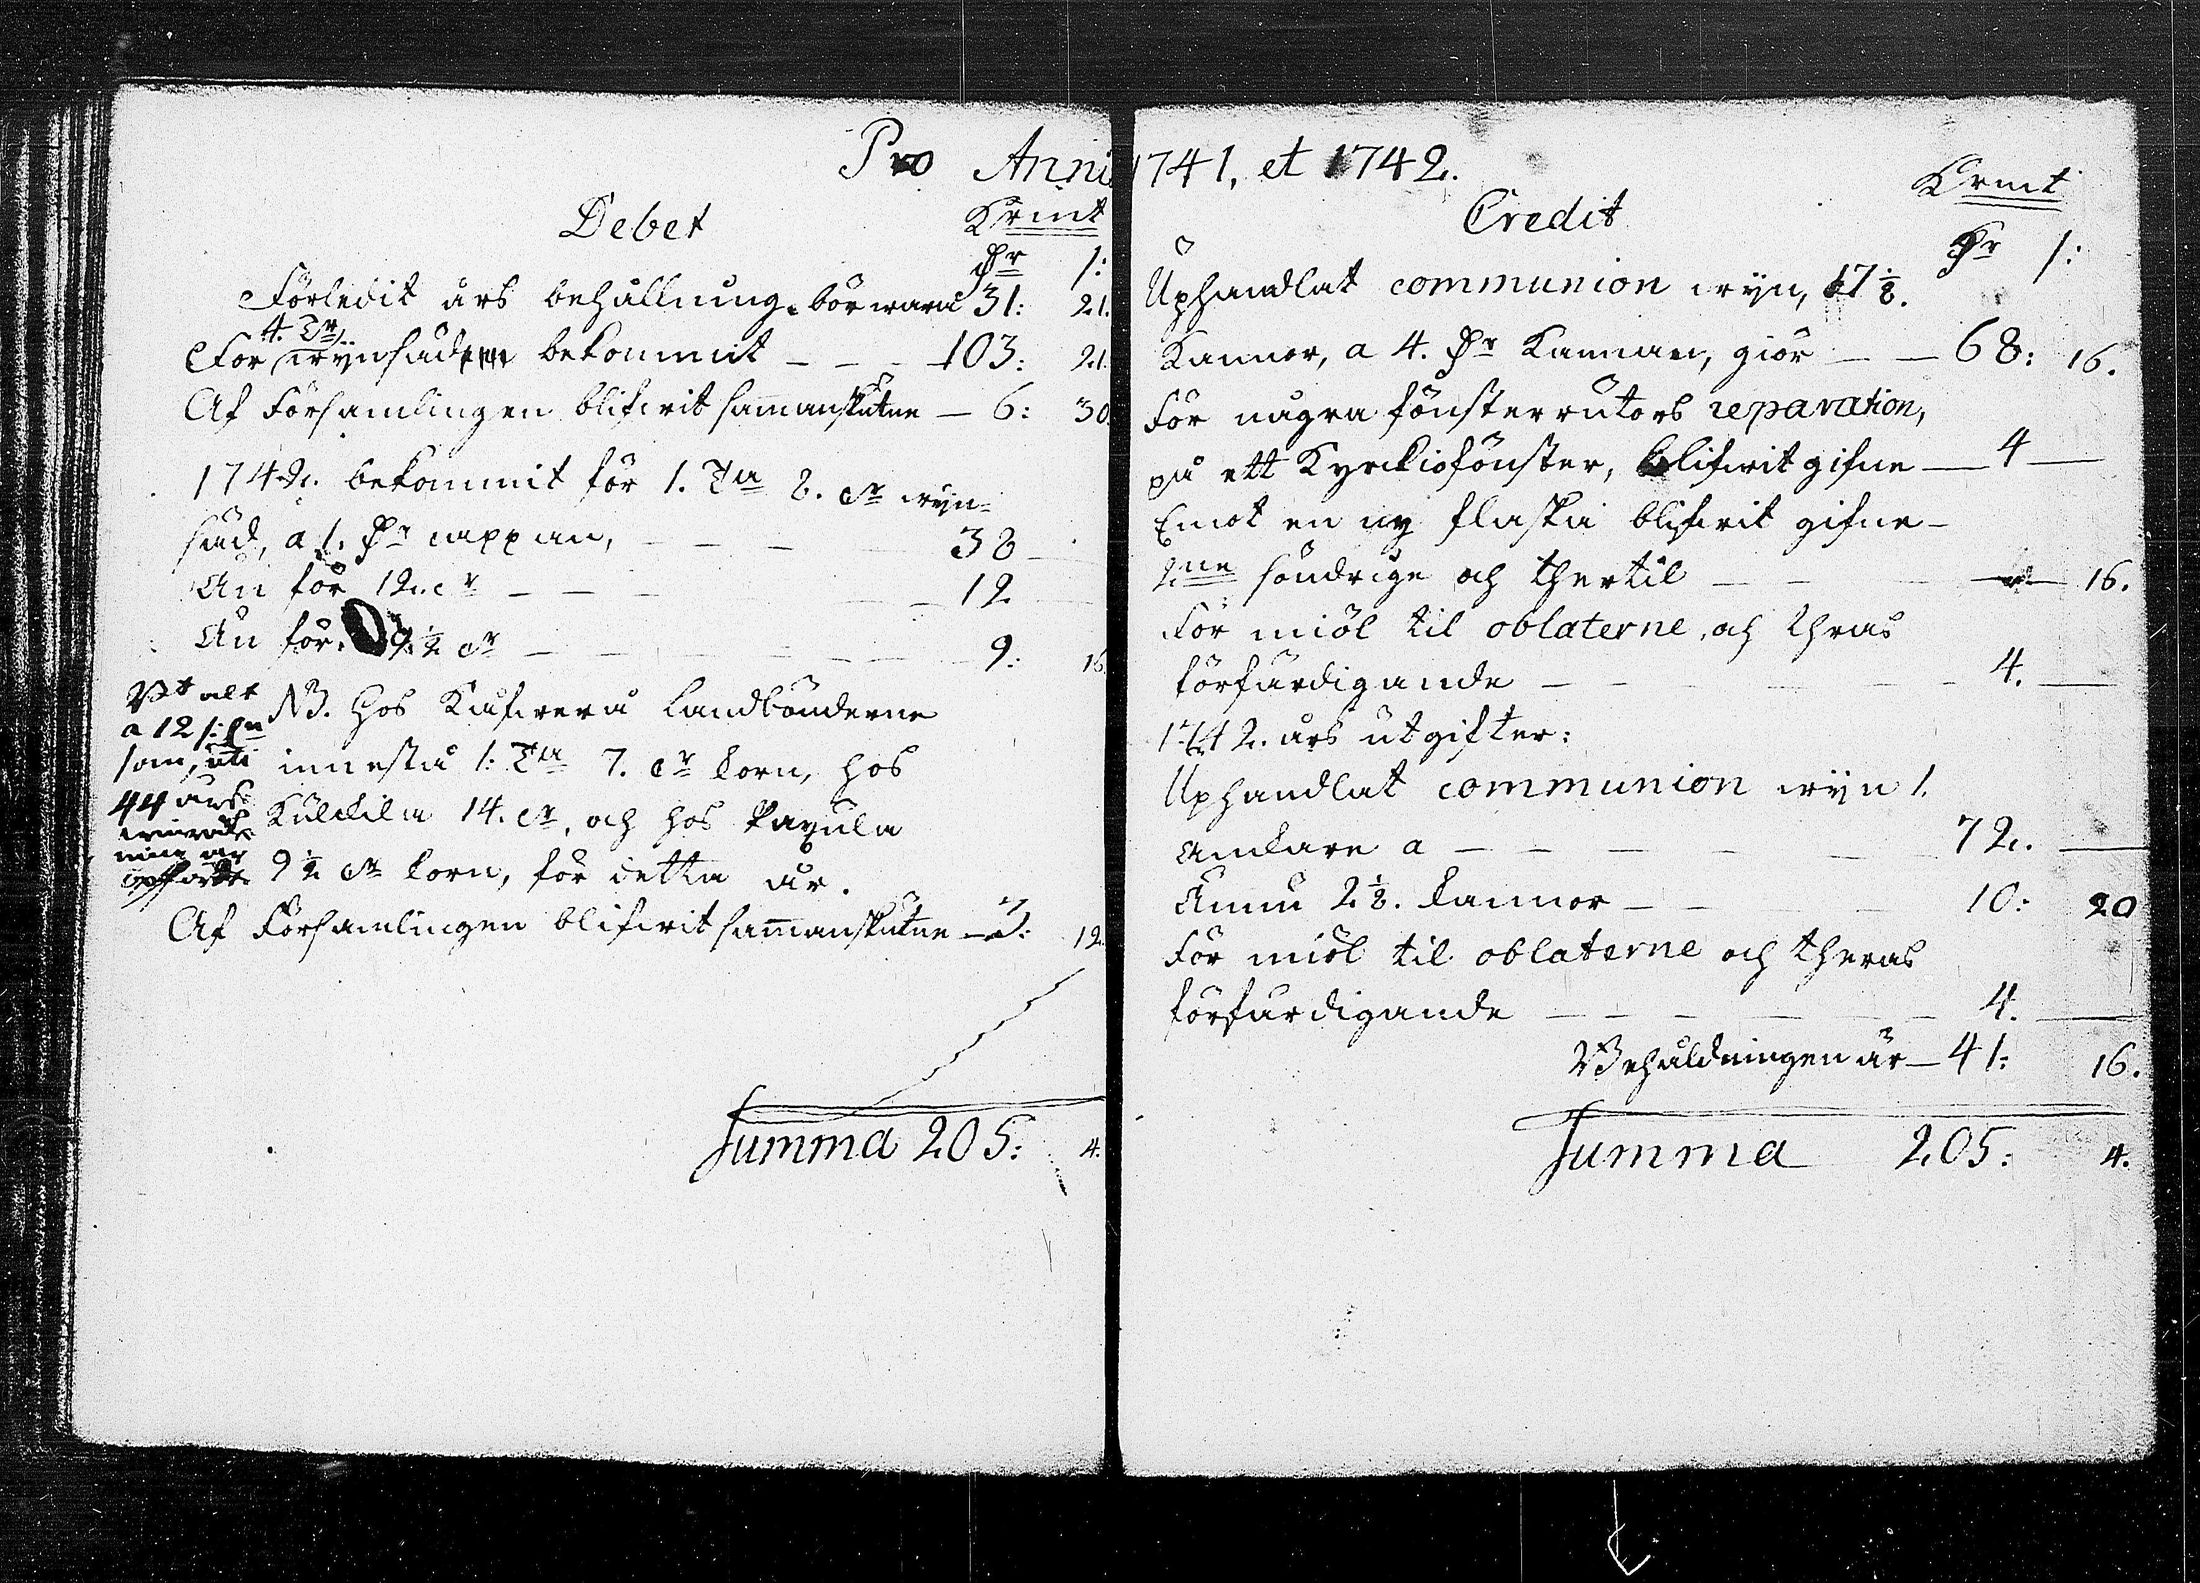 Pro Anni 1741, et 1742.
Debet
Krmt
Dr 1:
Förledit års behållning bör wara 31: 21.
4. Tr
För wijnsäden bekommit — — — 103: 21.
Af Församlingen blifwit sammanskutne — 6: 30.
1742. bekommit för 1. Ta 8. cr wijn-
säd, a 1. Dr cappan, — — — 38 —
Än för 12. cr — — — 12
Än för 9 ½ cr — — — 9: 16
NB. Hos Kaufwera Landbönderne
innestå 1: Ta 7. cr korn, hos
Kulckila 14. cr, och hos Payula
9 ½ cr korn, för detta år.
a 12
som, uti
44 års
Af Församlingen blifwit sammanskutne — 3: 12.
Summa 205: 4.
Credit
Krmt
Dr 1:
Uphandlat communion wijn, 17 ⅛.
Kannor, a 4. Dr Kannan, giör — — 68: 16.
För några fönsterrutors reparation,
på ett Kyrckiofönster, blifwit gifne — 4 —
Emot en ny flaska blifwit gifne —
2ne söndrige och thertil — — — 16.
För miöl til oblaterne, och thras
förfärdigande — — — 4. —
1742. års utgifter:
Uphandlat communion wijn 1.
Anckare a — — — 72. —
Ännu 2 ⅛. kannor — — 10: 20
För miöl til oblaterne och theras
förfärdigande — — — 4. —
Behåldningen är — 41: 16.
Summa 205: 4.